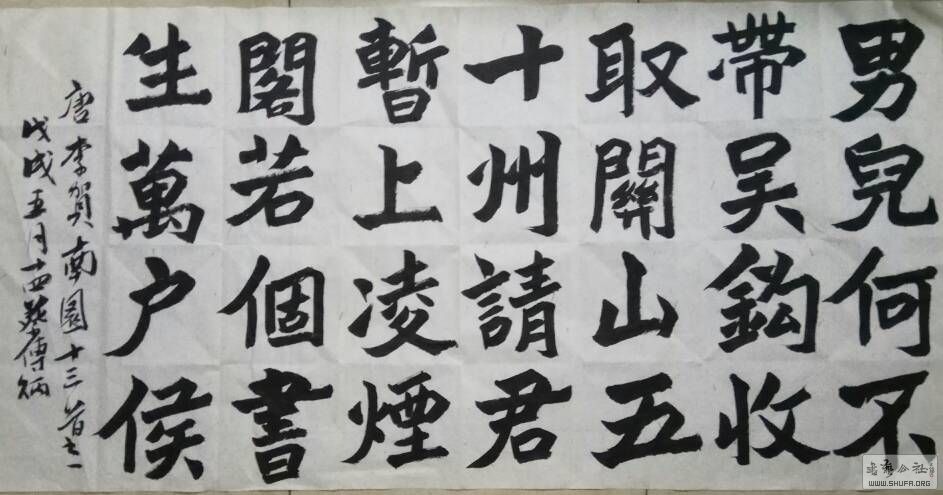 男兒何不
帶吴鈎收
取關山五
十州請君
暫上凌煙
閣若個書
生萬户侯
唐李賀南園十三首之一
戊戌五月十四
书艺公社
WWW.SHUFA.ORG